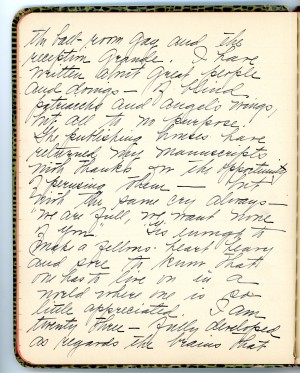 the ball-room gay and the
reception Grande. I have
written about great people
and doings — of blind
patriarchs and Angel's wings,
but all to no purpose.
The publishing houses have
returned my manuscripts
with thanks for the opportunity
of perusing them — but
with the same cry always —
"We are full, we want none
of you". 'Tis enough to
make a fellow's heart heavy
and sore to know that
one has to live on in a
world where one is so
little appreciated. I am
twenty three — fully developed
as regards the brains that